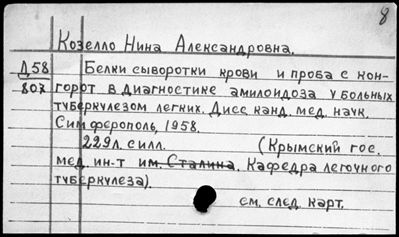 8
Козелло Нина Александровна.
Д58 Белки сыворотки крови и проба с кон-
807 горот в диагностике амилоидоза у больных
туберкулезом легких. Дисс. канд. мед. наук.
Симферополь, 1958.
229л. силл. (Крымский гос.
мед. ин-т им. Сталина. Кафедра легочного
туберкулеза).
см. след. карт.